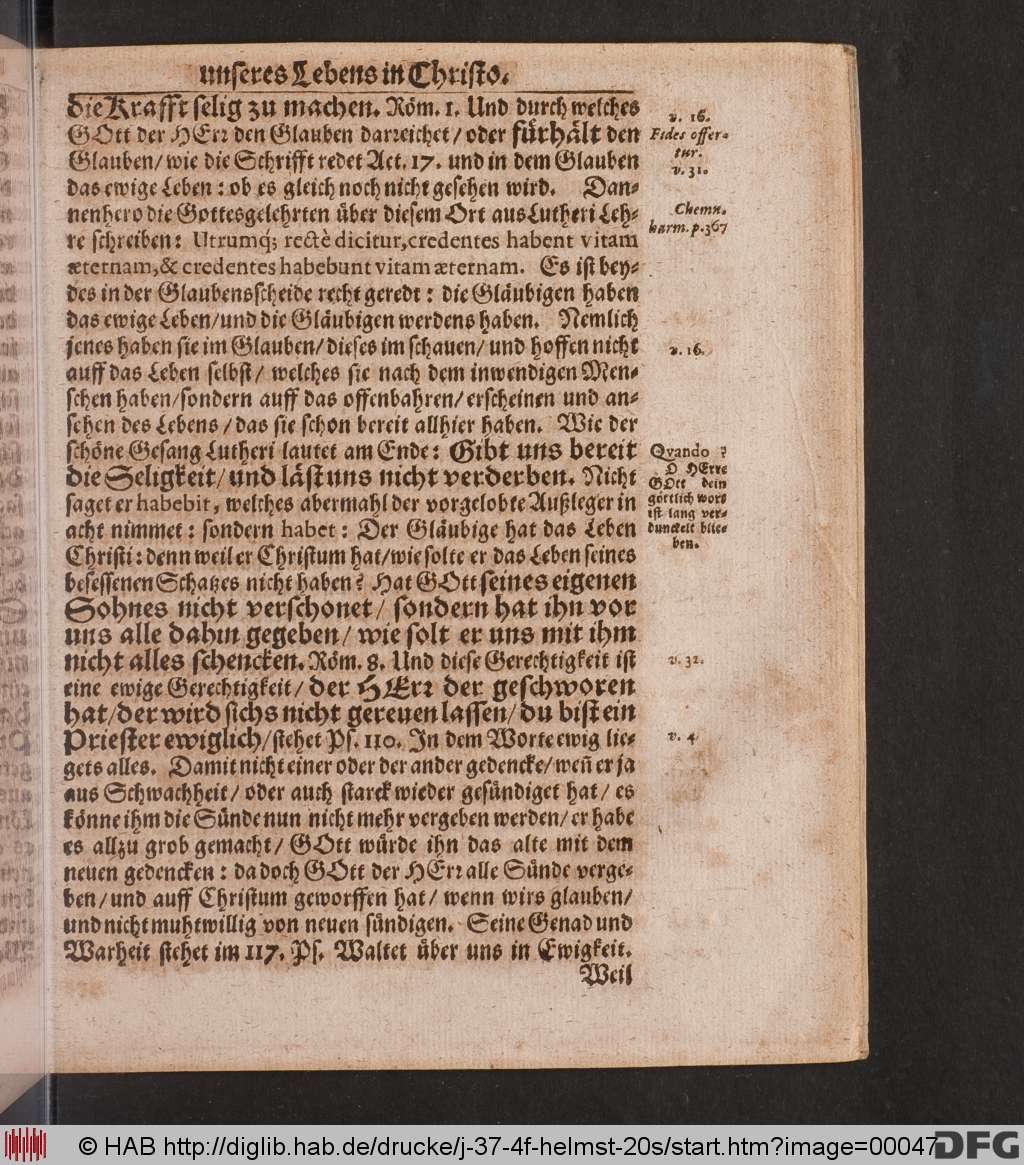 unseres Lebens in Christo.
die Krafft selig zu machen. Röm. 1. Und durch welches
GOtt der HErr den Glauben darreichet/ oder fürhält den
Glauben/ wie die Schrifft redet Act. 17. und in dem Glauben
das ewige Leben: ob es gleich noch nicht gesehen wird. Dan-
nenhero die Gottesgelehrten über diesem Ort aus Lutheri Leh-
re schreiben: Utrumq́; rectè dicitur, credentes habent vitam
æternam, & credentes habebunt vitam æternam. Es ist bey-
des in der Glaubensscheide recht geredt: die Gläubigen haben
das ewige Leben/ und die Gläubigen werdens haben. Nemlich
jenes haben sie im Glauben/ dieses im schauen/ und hoffen nicht
auff das Leben selbst/ welches sie nach dem inwendigen Men-
schen haben/ sondern auff das offenbahren/ erscheinen und an-
sehen des Lebens/ das sie schon bereit allhier haben. Wie der
schöne Gesang Lutheri lautet am Ende: Gibt uns bereit
die Seligkeit/ und läst uns nicht verderben. Nicht
saget er habebit, welches abermahl der vorgelobte Außleger in
acht nimmet: sondern habet: Der Gläubige hat das Leben
Christi: denn weil er Christum hat/ wie solte er das Leben seines
besessenen Schatzes nicht haben? Hat GOtt seines eigenen
Sohnes nicht verschonet/ sondern hat ihn vor
uns alle dahin gegeben/ wie solt er uns mit ihm
nicht alles schencken. Röm. 8. Und diese Gerechtigkeit ist
eine ewige Gerechtigkeit/ der HErr der geschworen
hat/ der wird sichs nicht gereuen lassen/ du bist ein
Priester ewiglich/ stehet Ps. 110. In dem Worte ewig lie-
gets alles. Damit nicht einer oder der ander gedencke/ weñ er ja
aus Schwachheit/ oder auch starck wieder gesündiget hat/ es
könne ihm die Sünde nun nicht mehr vergeben werden/ er habe
es allzu grob gemacht/ GOtt würde ihn das alte mit dem
neuen gedencken: da doch GOtt der HErr alle Sünde verge-
ben/ und auff Christum geworffen hat/ wenn wirs glauben/
und nicht muhtwillig von neuen sündigen. Seine Genad und
Warheit stehet im 117. Ps. Waltet über uns in Ewigkeit.
Weil
v. 16.
Fides offer-
tur.
v. 31.
Chemn.
harm. p. 367
v. 16.
Qvando?
O HErre
GOtt dein
göttlich wort
ist lang ver-
dunckelt blie-
ben.
v. 32.
v. 4
© HAB http://diglib.hab.de/drucke/j-37-4f-helmst-20s/start.htm?image=00047
DFG